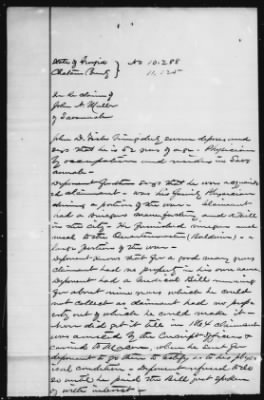 State of Georgia } No 10.288
Chatham County } 11.125
In re claim of
John A. Miller
of Savannah
John D. Fish being duly sworn deposes and
says that he is 52 years of age. Physician
by occupation and resides in Sav
annah.
Deponent further says that he was acquainted
claimant. was his family Physician
during a portion of the war. Claimant
had a Buggy manufactory and a Mill
in the city. He furnished wagons and
meal to the Confederates
large portion of the war.
Deponent knows that for a good many years
claimant had no property in his own name
Deponent had a Medical Bill running
for about nine years which he could
not collect as claimant had no prop
erty out of which he could make it
till in 1864 claimant
was arrested by the Conscript Officers &
carried to Macon, when he sent for
deponent to go there to testify as to his phys
ical condition. Deponent refused to do
so until he paid the Bill just spoken
of with interest &